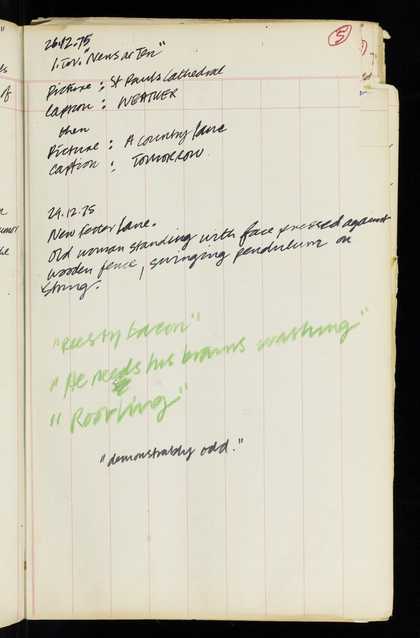 5
26.12.75
I.T.V. "News at Ten"
Picture : St Pauls Cathedral
Caption : WEATHER
then
Picture : A country lane
Caption : TOMORROW
29.12.75
New Fetter Lane.
Old woman standing with face pressed against
wooden fence, swinging pendulum on
string.
"Reesty bacon"
"He needs his brains washing"
"
"demonstrably odd."